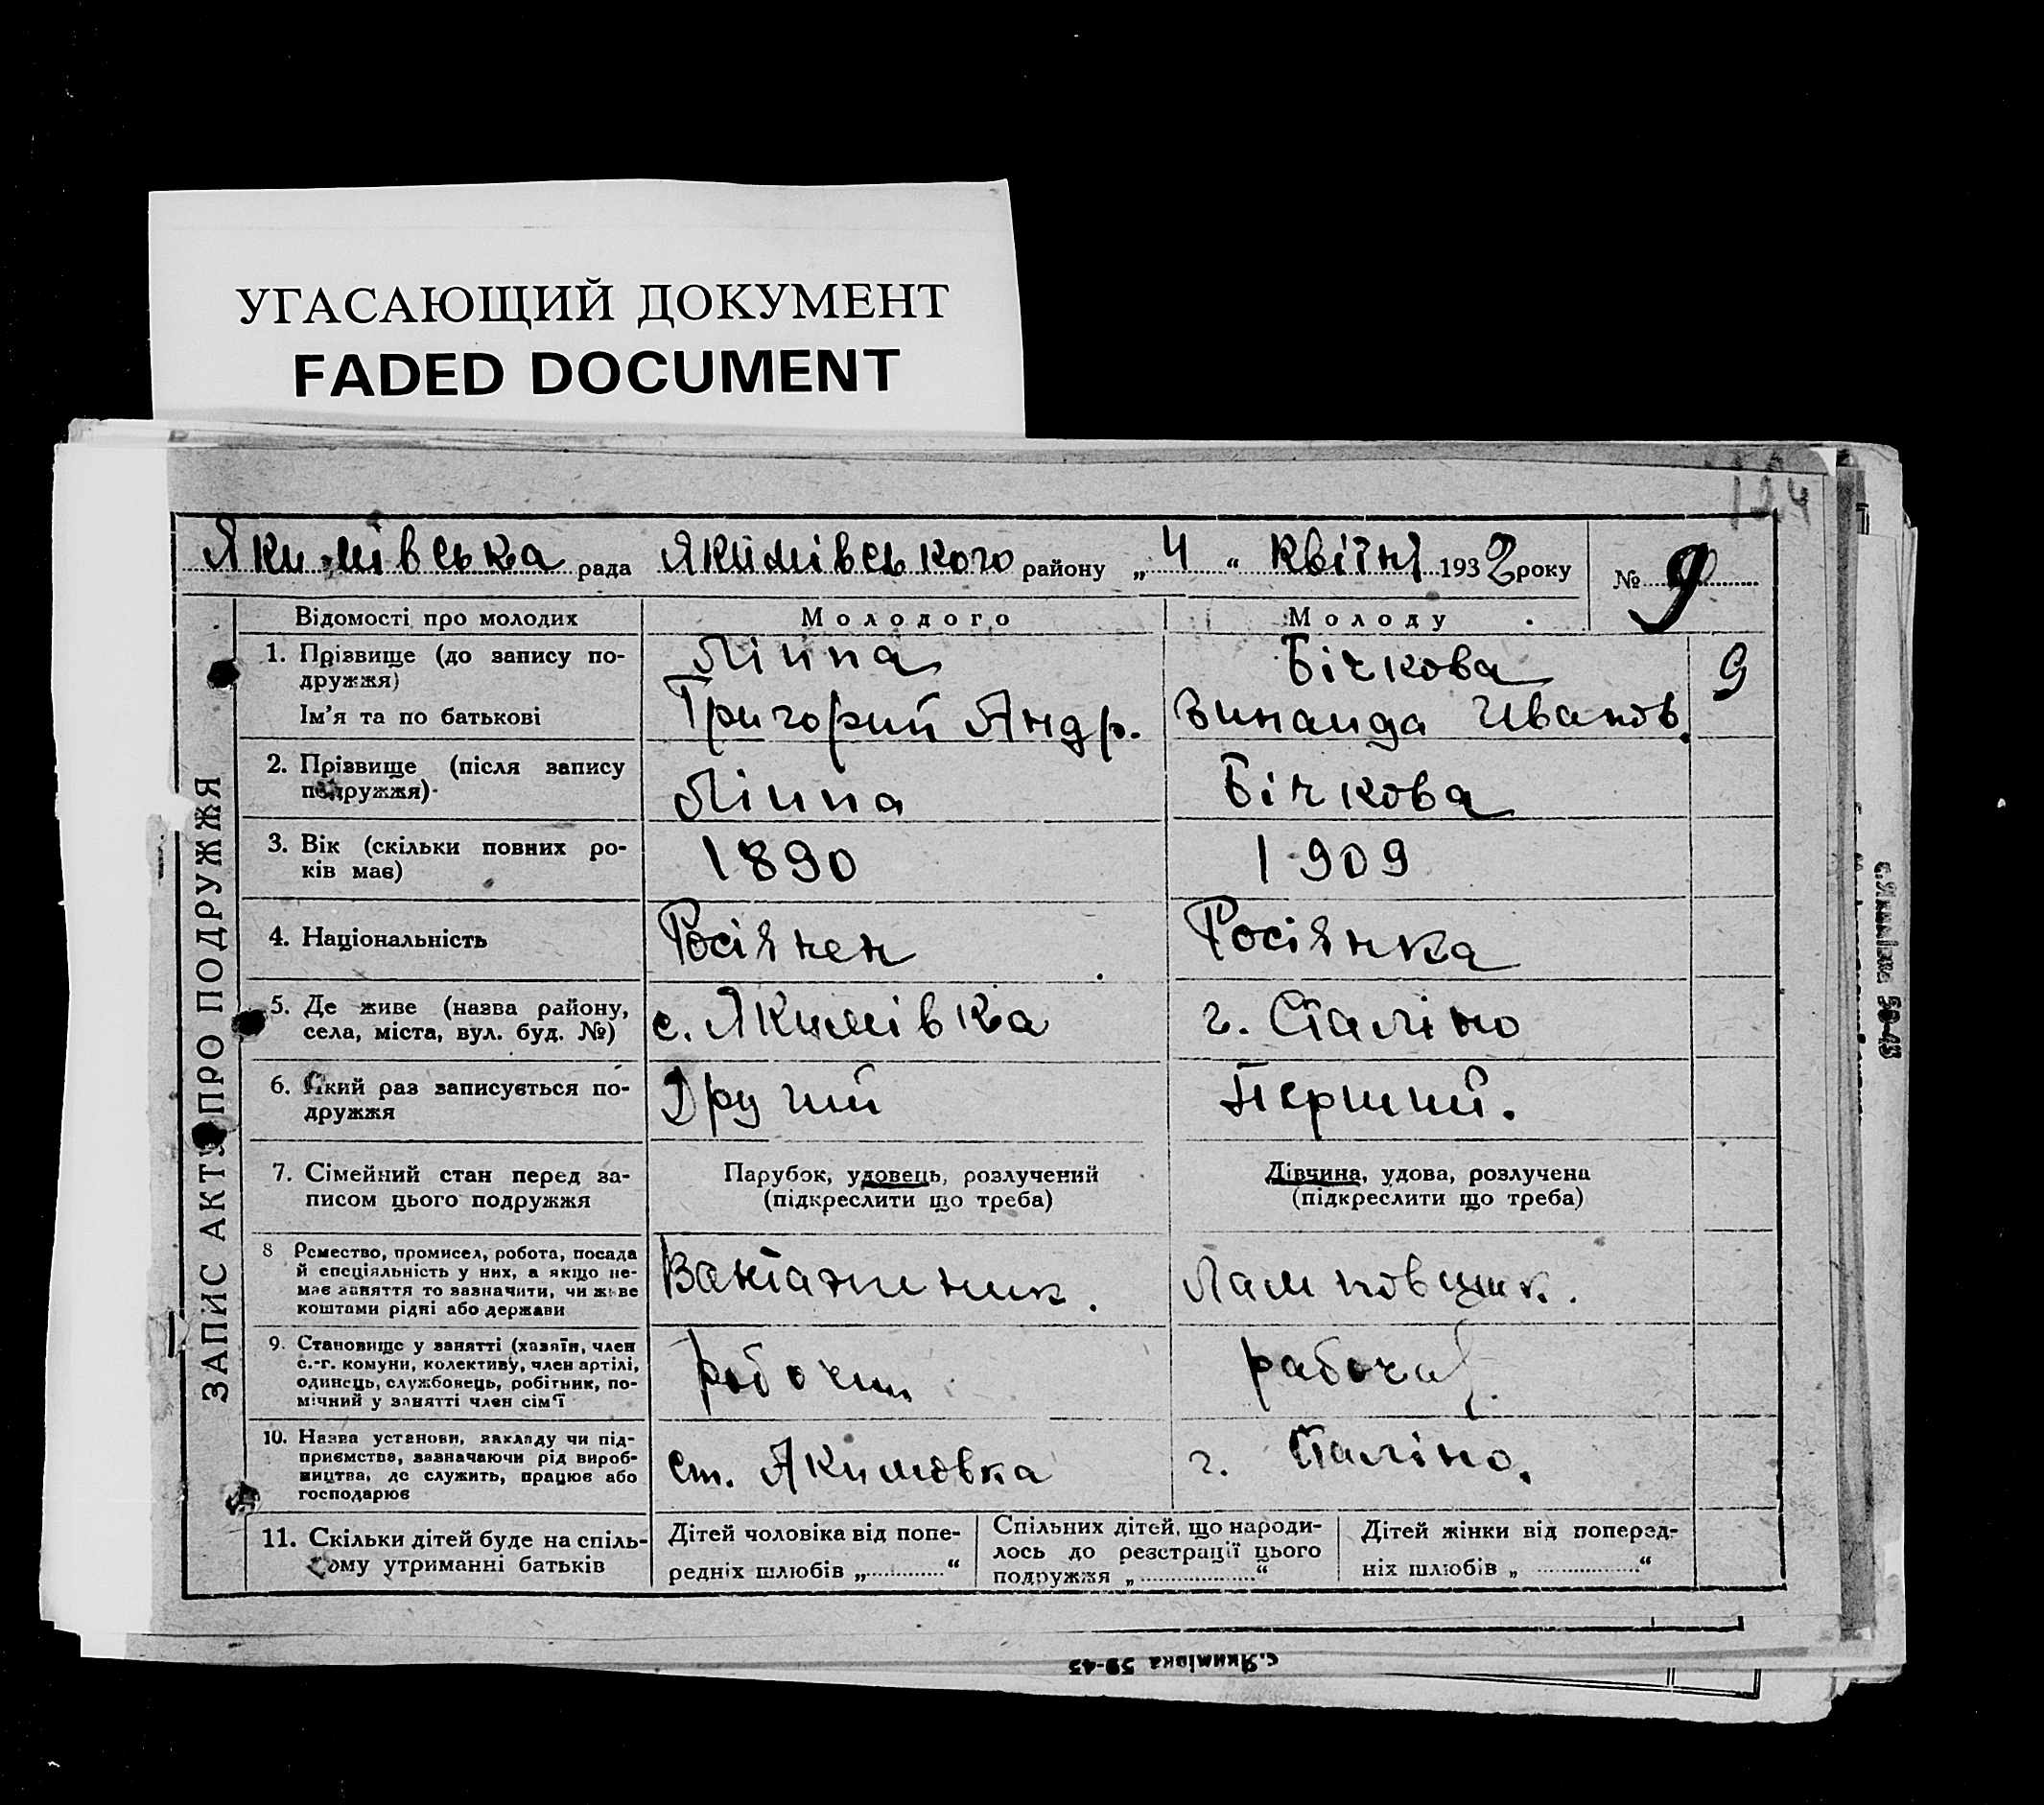 УГАСАЮЩИЙ ДОКУМЕНТ
FADED DOCUMENT
124
Якимівська рада Якимівського району „4“ квітня 1932 року № 9
Відомості про молодих
Молодого
Молоду
1. Прізвище (до запису по-
дружжя)
Ліппа
Бічкова
9
Ім'я та по батькові
Григорий Андр.
Зинаида Иванов.
2. Прізвище (після запису
подружжя)
Ліппа
Бічкова
3. Вік (скільки повних ро-
ків має)
1890
1909
4. Національність
Росіянен
Росіянка
5. Де живе (назва району,
села, міста, вул. буд. №)
с. Якимівка
г. Сталіно
6. Який раз записується по-
дружжя
Другий
Перший.
7. Сімейний стан перед за-
писом цього подружжя
Парубок, удовець, розлучений
(підкреслити що треба)
Дівчина, удова, розлучена
(підкреслити що треба)
8 Ремество, промисел, робота, посада
й спеціяльність у них, а якщо не-
має заняття то зазначити, чи живе
коштами рідні або держави
Вантажник.
Ламповщик.
9. Становище у занятті (хазяїн, член
с.-г. комуни, колективу, член артілі,
одинець, службовець, робітник, по-
мічний у занятті член сім'ї
рабочий
рабочая.
10. Назва установи, закладу чи під-
приємства, зазначаючи рід вироб-
ництва, де служить, працює або
господарює
ст. Якимовка
г. Сталіно.
11. Скільки дітей буде на спіль-
ному утриманні батьків
Дітей чоловіка від попе-
редніх шлюбів „ “
Спільних дітей, що народи-
лось до реєстрації цього
подружжя „ “
Дітей жінки від поперед-
ніх шлюбів „ “
ЗАПИС АКТУ ПРО ПОДРУЖЖЯ
с.Якимівка 59-45
с.Якимівка 59-45